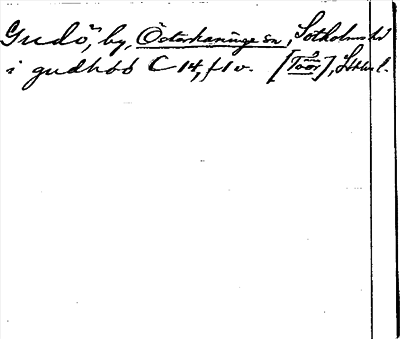 Gudö, by, Österhaninge sn, Sotholms hd
i gudhöö C 14, f 1 v. [Tvär], Sthm l.